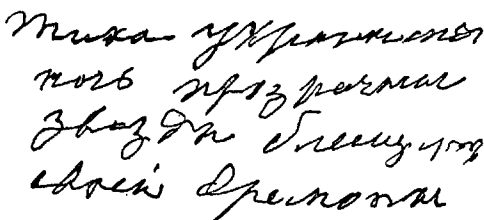 тиха украинская
ночь прозрачна
звезды блещут
своей дремоты